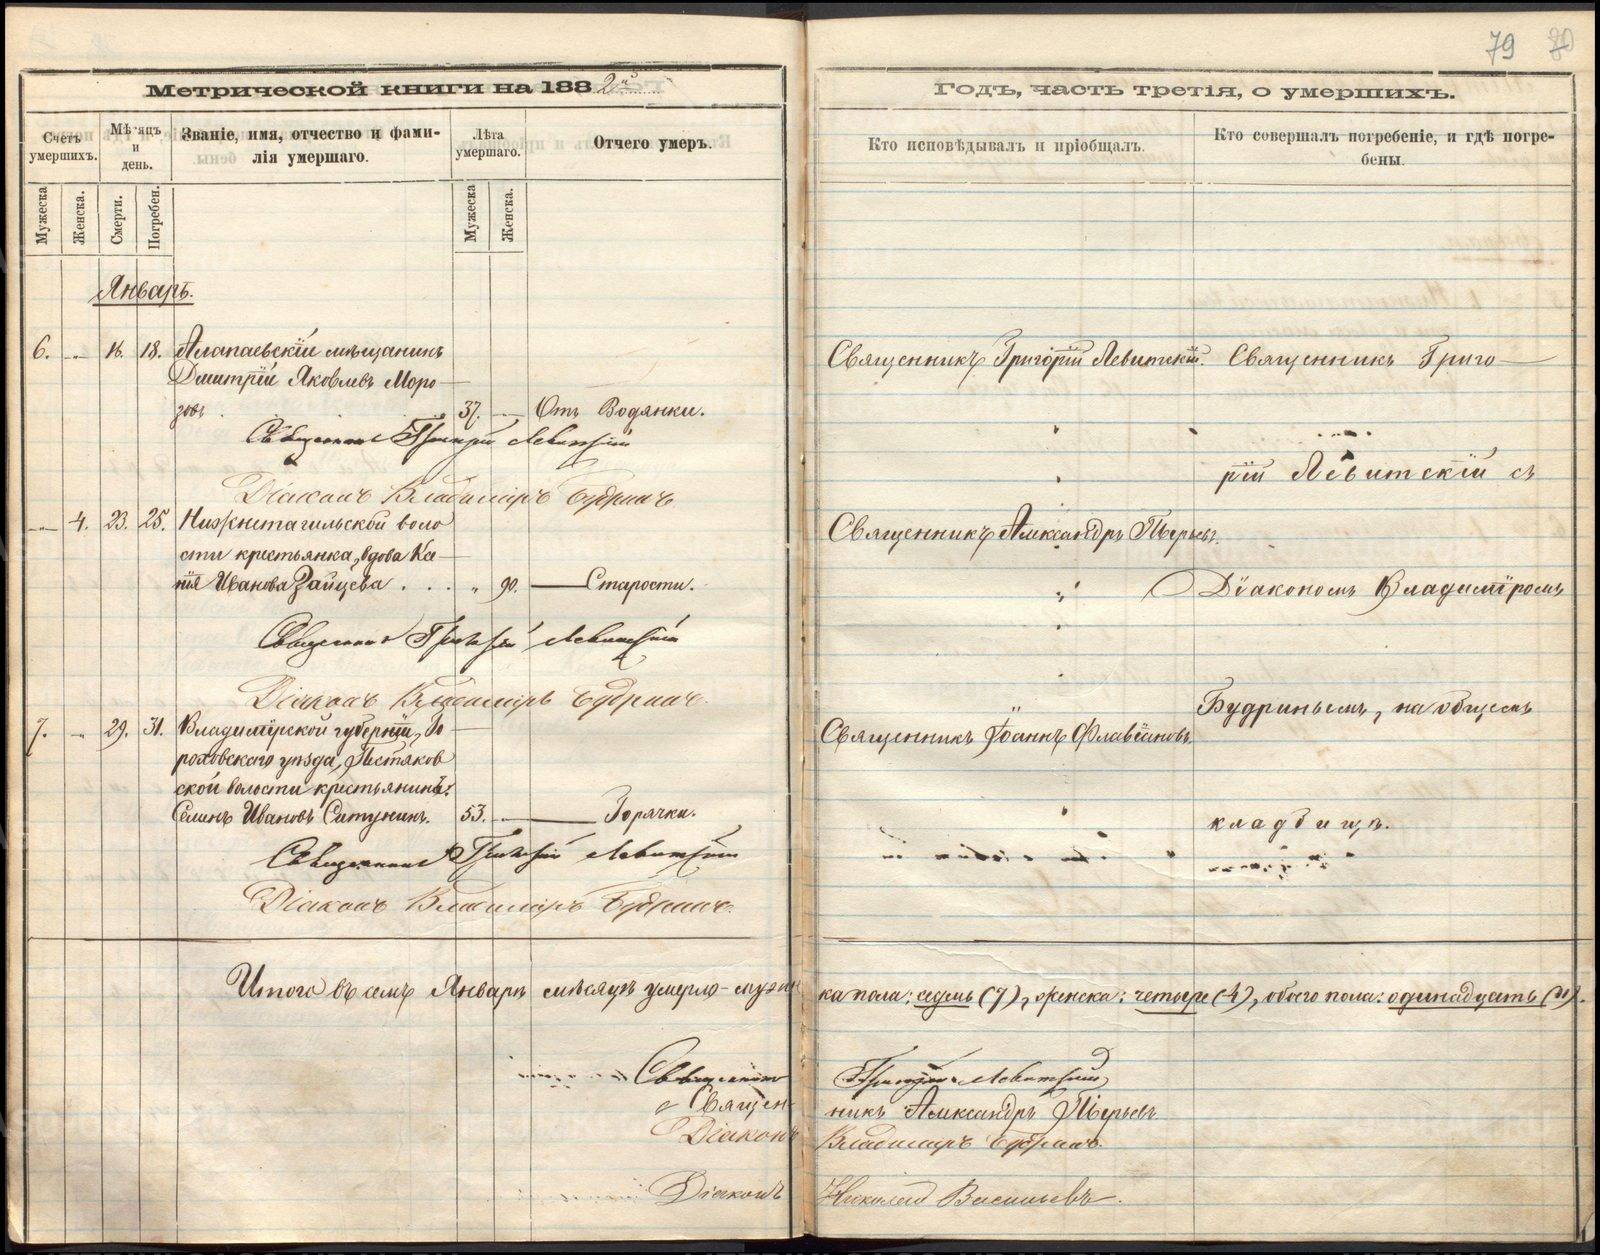 79
Метрической книги на 1882й
Годъ, часть третія, о умершихъ.
Счетъ умершихъ.
Мѣсяцъ и день.
Званіе, имя, отчество и фами-
лія умершаго.
Лѣта умершаго.
Отчего умеръ.
Кто исповѣдывалъ и пріобщалъ.
Кто совершалъ погребеніе, и гдѣ погре-
бены.
Мужеска
Женска.
Смерти.
Погребен.
Мужеска
Женска.
Январь.
6. „ 16. 18. Алапаевскій мѣщанинъ
Дмитрій Яковлевъ Моро-
зовъ 37. — Отъ Водянки.
Священникъ Григорій Левитскій
Діаконъ Владиміръ Будринъ
Священникъ Григорій Левитскій.
Священникъ Григо-
рій Левитскій съ
„ 4. 23. 25. Нижнетагильской воло-
сти крестьянка, вдова
Иванова Зайцева . . . „ 90. — Старости.
Священникъ Григорій Левитскій
Діаконъ Владиміръ Будринъ.
Священникъ Александръ
Діакономъ Владиміромъ
Будринымъ, на общемъ
7. „ 29. 31. Владимірской губерніи, Го-
роховскаго уѣзда, Пестяков-
ской волости крестьянинъ
Иванов Ситунин. 53. — Горячки.
Священникъ Григорій Левитскій
Діаконъ Владиміръ Будринъ.
Священникъ Іоаннъ Флавіановъ
кладбищѣ.
Итого въ семъ Январѣ мѣсяцѣ умерло — мужес-
ка пола: седмь (7), женска: четыре (4), обоего пола: одинадцать (11).
Священникъ Григорій Левитскій
Священ-
никъ Александръ
Діаконъ Владиміръ Будринъ.
Діаконъ Николай Васильевъ.